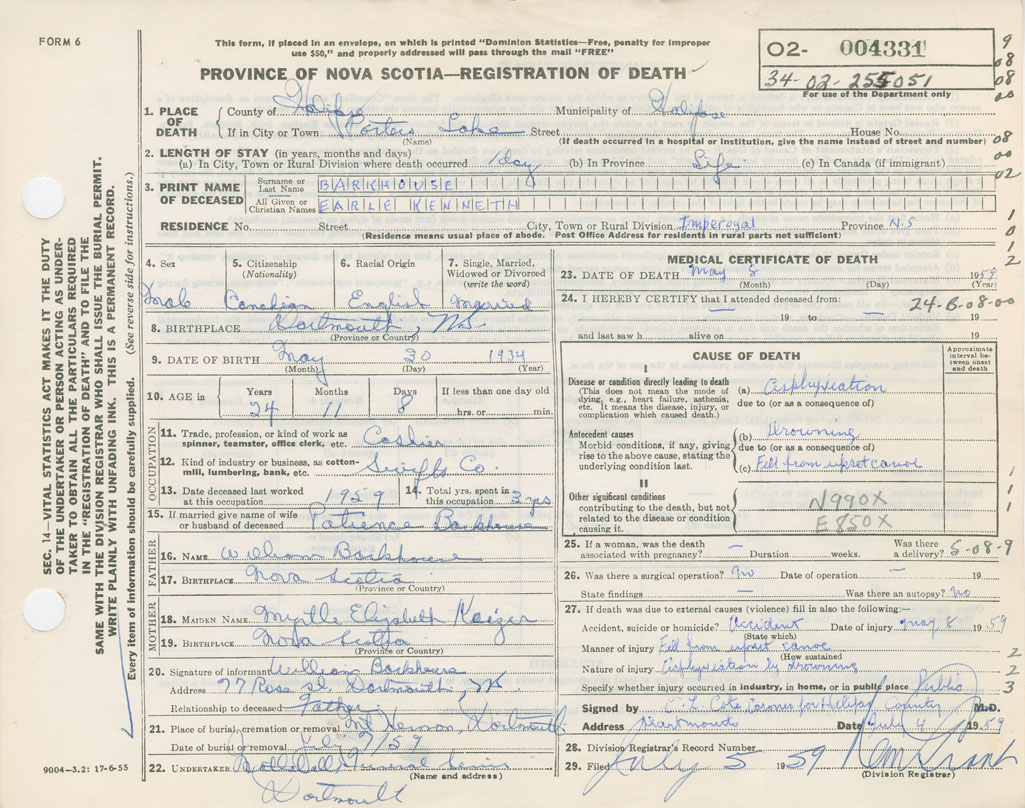 FORM 6
This form, if placed in an envelope, on which is printed "Dominion Statistics—Free, penalty for improper
use $50," and properly addressed will pass through the mail "FREE"
PROVINCE OF NOVA SCOTIA—REGISTRATION OF DEATH
02- 004331
34-02-255051
For use of the Department only
9
08
08
00
1. PLACE OF DEATH
County of Halifax Municipality of Halifax
If in City or Town Porters Lake Street House No.
(Name) (If death occurred in a hospital or institution, give the name instead of street and number)
08
2. LENGTH OF STAY (in years, months and days)
(a) In City, Town or Rural Division where death occurred 1 day (b) In Province Life (c) In Canada (if immigrant)
00
02
3. PRINT NAME OF DECEASED
Surname or Last Name BARKHOUSE
All Given or Christian Names EARLE KENNETH
RESIDENCE No. Street City, Town or Rural Division Imperoyal Province N.S
(Residence means usual place of abode. Post Office Address for residents in rural parts not sufficient)
1
0
1
2
SEC. 14—VITAL STATISTICS ACT MAKES IT THE DUTY
OF THE UNDERTAKER OR PERSON ACTING AS UNDER-
TAKER TO OBTAIN ALL THE PARTICULARS REQUIRED
IN THE "REGISTRATION OF DEATH" AND FILE THE
SAME WITH THE DIVISION REGISTRAR WHO SHALL ISSUE THE BURIAL PERMIT.
WRITE PLAINLY WITH UNFADING INK. THIS IS A PERMANENT RECORD.
Every item of information should be carefully supplied. (See reverse side for instructions.)
4. Sex 5. Citizenship 6. Racial Origin 7. Single, Married,
(Nationality) Widowed or Divorced
(write the word)
Male Canadian English Married
8. BIRTHPLACE Dartmouth, N.S.
(Province or Country)
9. DATE OF BIRTH May 30 1934
(Month) (Day) (Year)
10. AGE in Years Months Days If less than one day old
24 11 8 hrs. or min.
OCCUPATION
11. Trade, profession, or kind of work as
spinner, teamster, office clerk, etc. Cashier
12. Kind of industry or business, as cotton-
mill, lumbering, bank, etc. Swifts Co.
13. Date deceased last worked
at this occupation 1959
14. Total yrs. spent in
this occupation 3 yrs
15. If married give name of wife
or husband of deceased Patience Barkhouse
FATHER
16. NAME William Barkhouse
17. BIRTHPLACE Nova Scotia
(Province or Country)
MOTHER
18. MAIDEN NAME Myrtle Elizabeth Kaizer
19. BIRTHPLACE Nova Scotia
(Province or Country)
20. Signature of informant William Barkhouse
Address 77 Rose St, Dartmouth, N.S.
Relationship to deceased Father
21. Place of burial, cremation or removal Mt Hermon, Dartmouth
Date of burial or removal July 7/59
22. UNDERTAKER Funeral Service
(Name and address)
Dartmouth
9004—3.2: 17-6-55
MEDICAL CERTIFICATE OF DEATH
23. DATE OF DEATH May 8 1959
(Month) (Day) (Year)
24. I HEREBY CERTIFY that I attended deceased from:
24-B-08-00
— 19 to — 19
and last saw h alive on 19
CAUSE OF DEATH
Approximate
interval be-
tween onset
and death
I
Disease or condition directly leading to death
(This does not mean the mode of
dying, e.g., heart failure, asthenia,
etc. It means the disease, injury, or
complication which caused death.)
(a) Asphyxiation
due to (or as a consequence of)
Antecedent causes
Morbid conditions, if any, giving
rise to the above cause, stating the
underlying condition last.
(b) Drowning
due to (or as a consequence of)
(c) Fell from upset canoe
II
Other significant conditions
contributing to the death, but not
related to the disease or condition
causing it.
N990X
E850X
1
1
1
25. If a woman, was the death
associated with pregnancy? — Duration weeks. Was there
a delivery? 5-08-9
26. Was there a surgical operation? No Date of operation — 19
State findings — Was there an autopsy? No
27. If death was due to external causes (violence) fill in also the following:—
Accident, suicide or homicide? Accident Date of injury May 8 1959
(State which)
Manner of injury Fell from upset canoe
(How sustained)
2
Nature of injury Asphyxiation by drowning
2
Specify whether injury occurred in industry, in home, or in public place Public
3
Signed by Cote Coroner for Halifax County M.D.
Address Dartmouth Date July 4 1959
28. Division Registrar's Record Number
29. Filed July 5 1959
(Division Registrar)